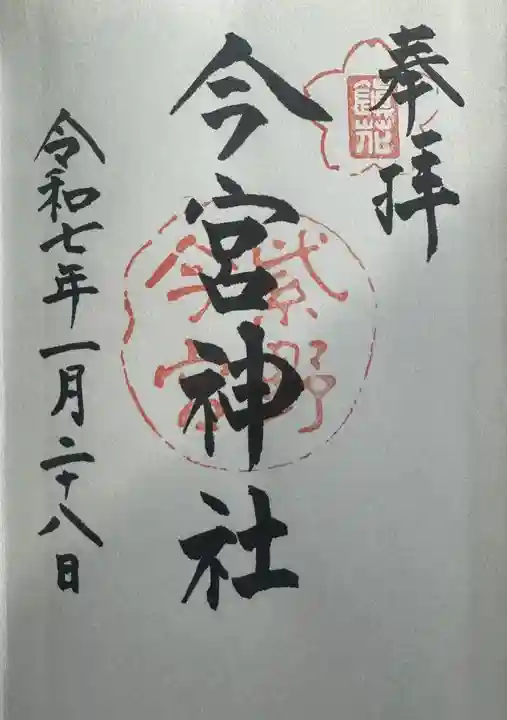 奉拝
今宮神社
紫野
今宮
令和七年一月二十八日